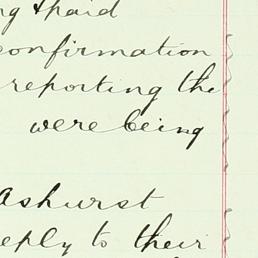 ng & paid
confirmation
reporting the
were being
Ashurst
reply to their